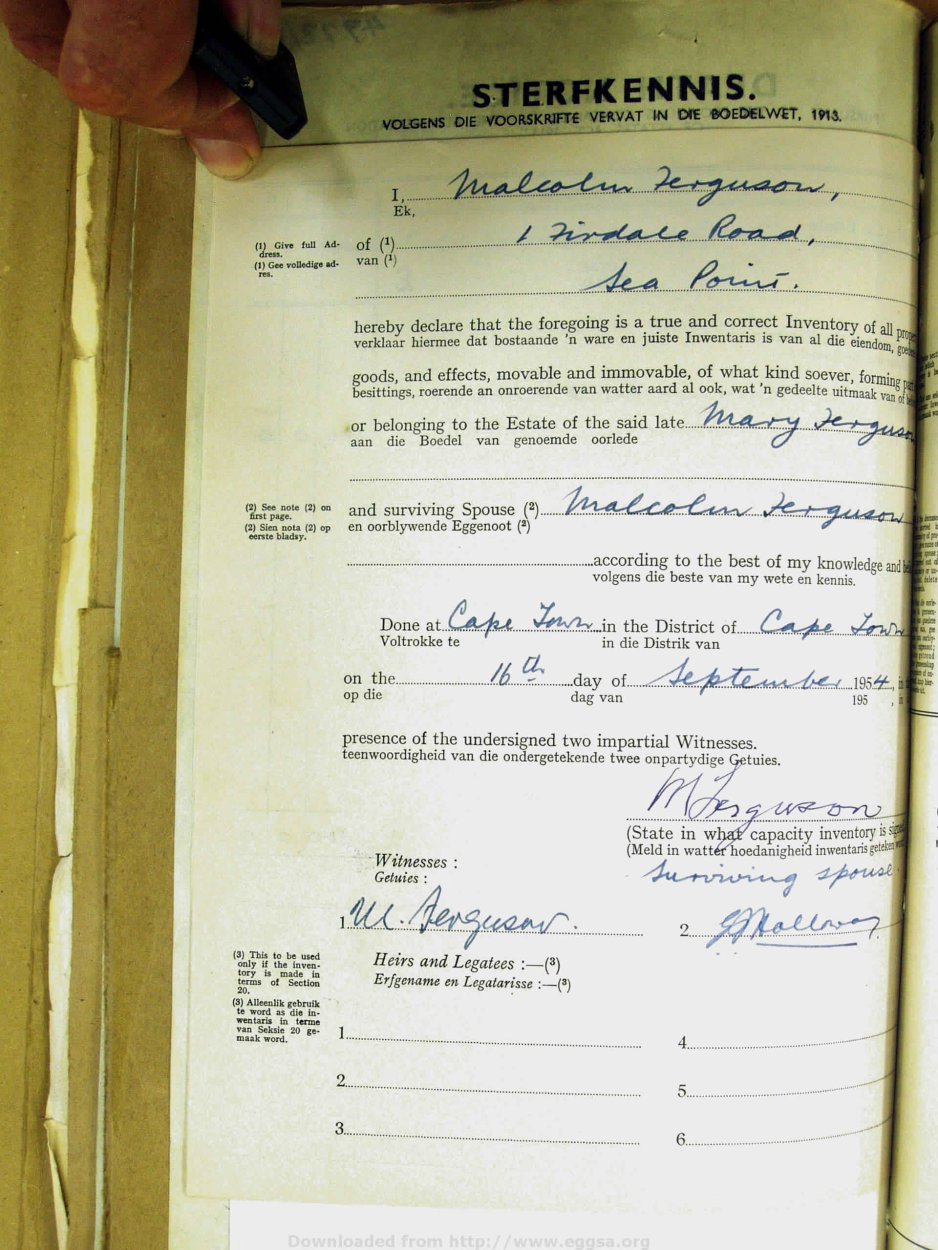 STERFKENNIS.
VOLGENS DIE VOORSKRIFTE VERVAT IN DIE BOEDELWET, 1913.
I, Malcolm Ferguson,
Ek,
(1) Give full Address.
(1) Gee volledige adres.
of (1) 1 Firdale Road,
van (1)
Sea Point.
hereby declare that the foregoing is a true and correct Inventory of all
verklaar hiermee dat bostaande 'n ware en juiste Inwentaris is van al die eiendom,
goods, and effects, movable and immovable, of what kind soever, forming
besittings, roerende an onroerende van watter aard al ook, wat 'n gedeelte uitmaak van of
or belonging to the Estate of the said late Mary Ferguson
aan die Boedel van genoemde oorlede
(2) See note (2) on first page.
(2) Sien nota (2) op eerste bladsy.
and surviving Spouse (2) Malcolm Ferguson
en oorblywende Eggenoot (2)
according to the best of my knowledge and
volgens die beste van my wete en kennis.
Done at Cape Town in the District of Cape Town
Voltrokke te in die Distrik van
on the 16th day of September 1954, in
op die dag van 195 , in
presence of the undersigned two impartial Witnesses.
teenwoordigheid van die ondergetekende twee onpartydige Getuies.
M Ferguson
(State in what capacity inventory is
(Meld in watter hoedanigheid inwentaris geteken
Surviving spouse.
Witnesses :
Getuies :
1 M. Ferguson. 2
(3) This to be used only if the inventory is made in terms of Section 20.
(3) Alleenlik gebruik te word as die inwentaris in terme van Seksie 20 gemaak word.
Heirs and Legatees :—(3)
Erfgename en Legatarisse :—(3)
1 4
2 5
3 6
Downloaded from http://www.eggsa.org